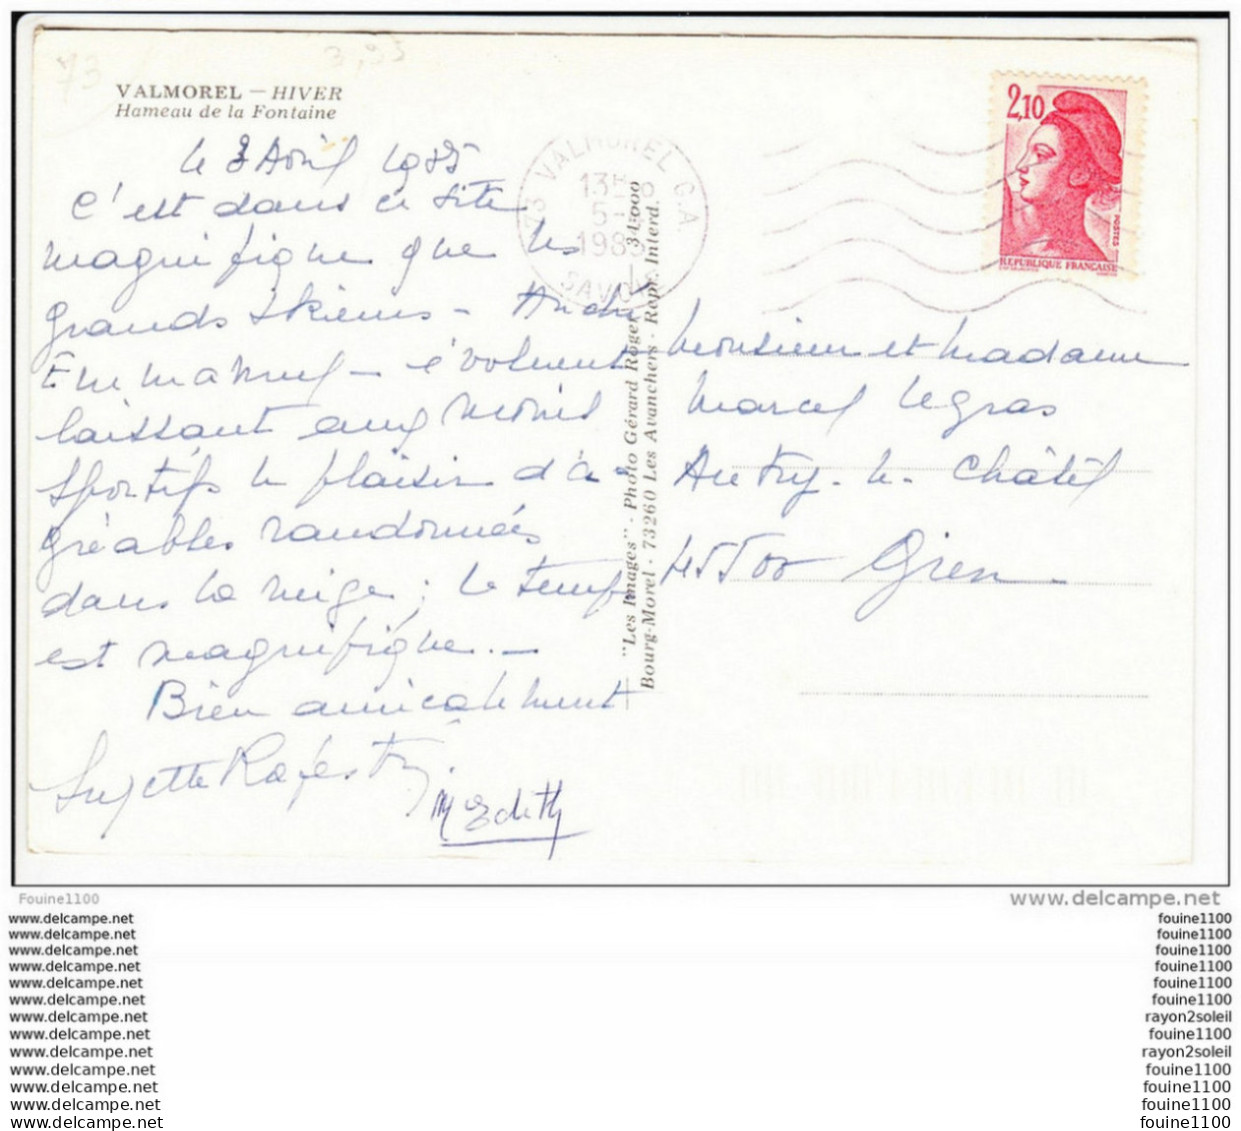 73
VALMOREL — HIVER
Hameau de la Fontaine
le 3 Avril 1985
C'est dans ce site
magnifique que les
grands skieurs - André
Emmanuel - évoluent
laissant aux moins
sportifs le plaisir d'a-
gréables randonnées
dans la neige ; le temps
est magnifique. -
Bien amicalement
Suzette
Edith
73 VALMOREL C.A.
SAVOIE
"Les Images" - Photo Gérard Roger - 345000
Bourg-Morel - 73260 Les Avanchers - Repr. Interd.
2,10
POSTES
REPUBLIQUE FRANÇAISE
Monsieur et Madame
Marcel Legras
Autry-le-Châtel
45500 Gien
Fouine1100
www.delcampe.net
www.delcampe.net fouine1100
www.delcampe.net fouine1100
www.delcampe.net fouine1100
www.delcampe.net fouine1100
www.delcampe.net fouine1100
www.delcampe.net fouine1100
www.delcampe.net rayon2soleil
www.delcampe.net fouine1100
www.delcampe.net rayon2soleil
www.delcampe.net fouine1100
www.delcampe.net fouine1100
www.delcampe.net fouine1100
www.delcampe.net fouine1100